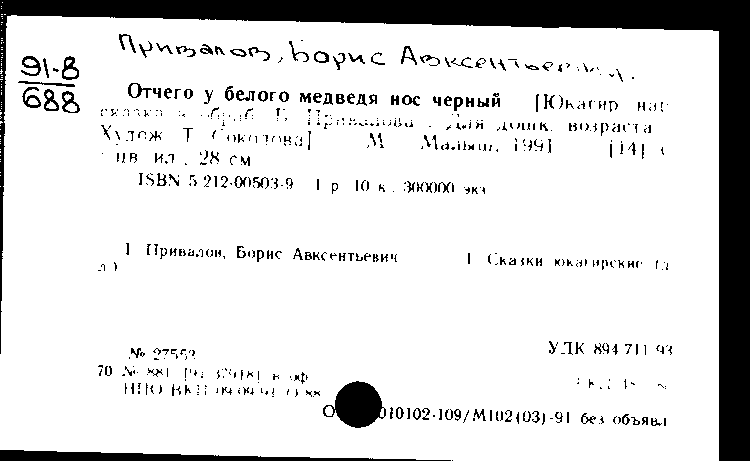 Привалов, Борис Авксентьевич.
91-8
688
Отчего у белого медведя нос черный [Юкагир нар
сказка в обраб. Б Привалова : Для дошк. возраста
Худож Т Соколова] М Малыш, 1991 [14] с
цв ил , 28 см
ISBN 5 212-00503-9 1 р 10 к , 300000 экз
1 Привалов, Борис Авксентьевич 1 Сказки юкагирские
№ 27553
УДК 894 711 93
70 № 881 [91 37918] в оф
НПО ВКП 09 09 91
О 010102-109/М102(03)-91 без объявл